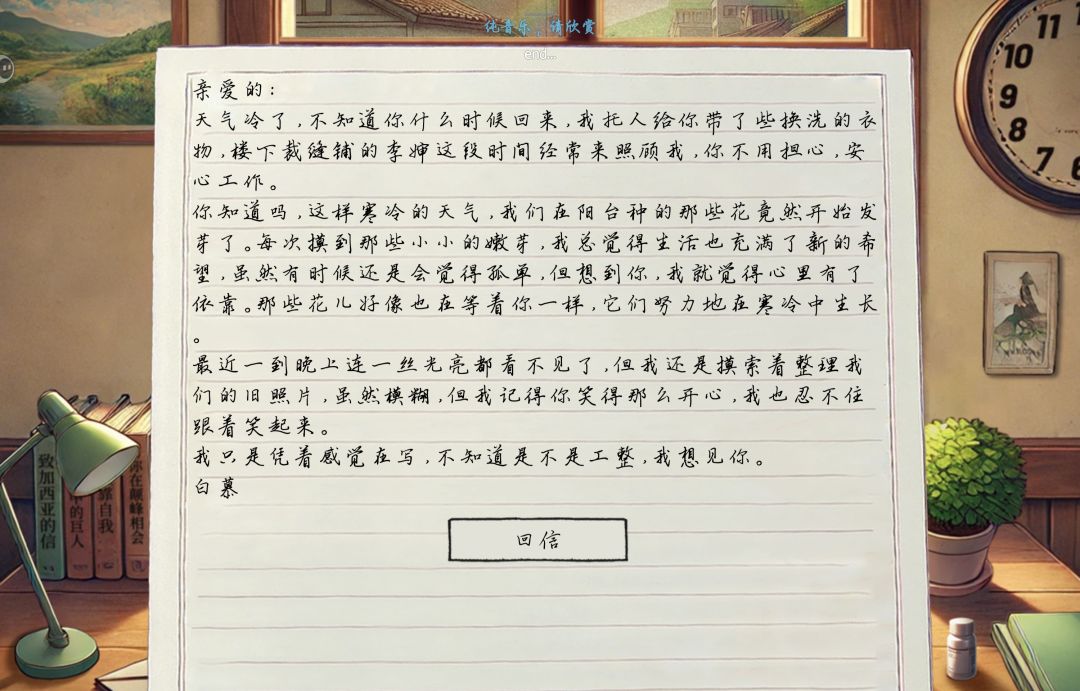 纯音乐，请欣赏
end...
亲爱的：
天气冷了,不知道你什么时候回来,我托人给你带了些换洗的衣
物,楼下裁缝铺的李婶这段时间经常来照顾我,你不用担心,安
心工作。
你知道吗,这样寒冷的天气,我们在阳台种的那些花竟然开始发
芽了。每次摸到那些小小的嫩芽,我总觉得生活也充满了新的希
望,虽然有时候还是会觉得孤单,但想到你,我就觉得心里有了
依靠。那些花儿好像也在等着你一样,它们努力地在寒冷中生长
。
最近一到晚上连一丝光亮都看不见了,但我还是摸索着整理我
们的旧照片,虽然模糊,但我记得你笑得那么开心,我也忍不住
跟着笑起来。
我只是凭着感觉在写,不知道是不是工整,我想见你。
白慕
回信
11
10
9
8
7
6
致加西亚的信
中的巨人
靠自我
你在巅峰相会